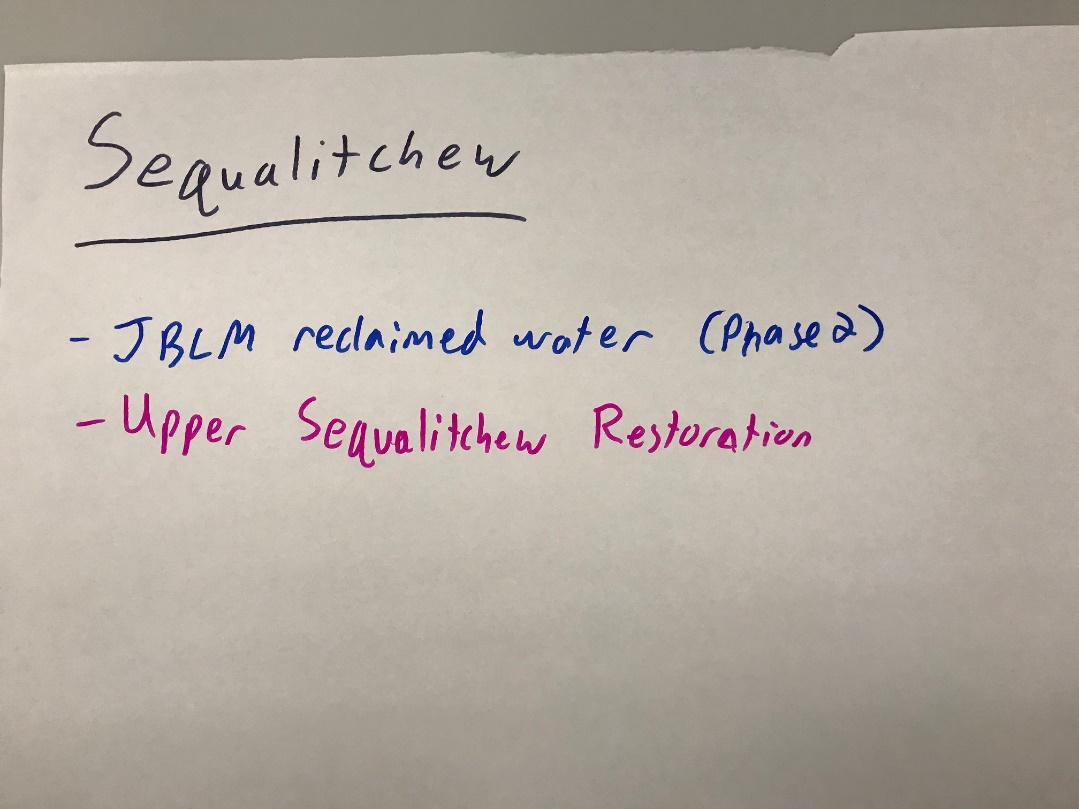 Sequalitchew
- JBLM reclaimed water (Phase 2)
- Upper Sequalitchew Restoration